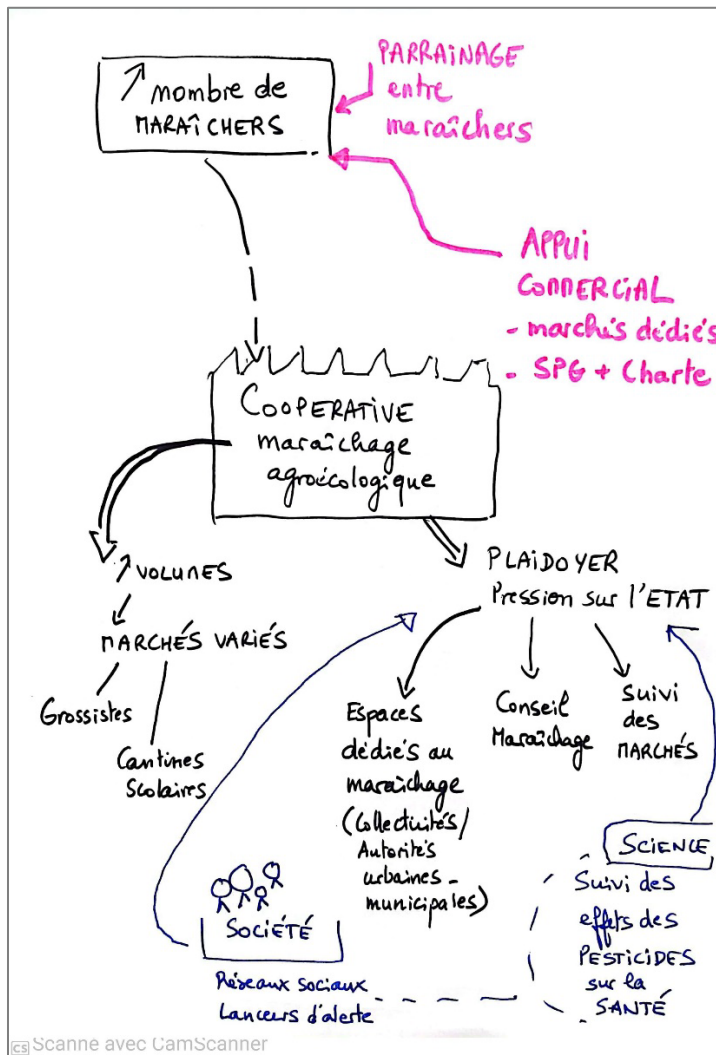 ↗ nombre de
MARAÎCHERS
PARRAINAGE
entre
maraîchers
APPUI
COMMERCIAL
- marchés dédiés
- SPG + Charte
COOPERATIVE
maraîchage
agroécologique
↗ VOLUMES
MARCHÉS VARIÉS
Grossistes
Cantines
Scolaires
PLAIDOYER
Pression sur l'ETAT
Espaces
dédiés au
maraîchage
(Collectivités/
Autorités
urbaines -
municipales)
Conseil
Maraîchage
Suivi
des
MARCHÉS
SOCIÉTÉ
Réseaux sociaux
Lanceurs d'alerte
SCIENCE
Suivi des
effets des
PESTICIDES
sur la
SANTÉ
CS Scanné avec CamScanner